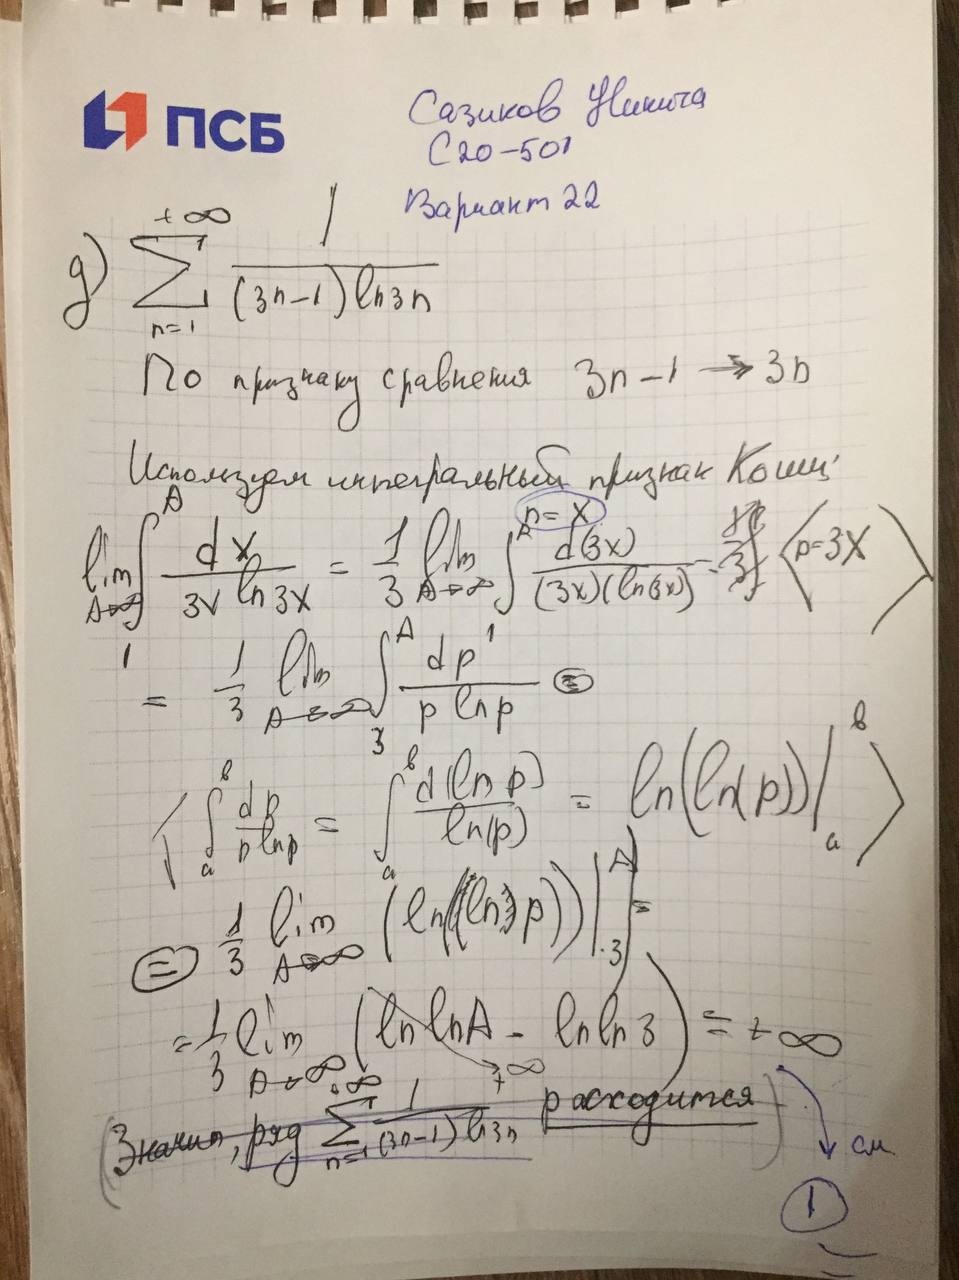 ПСБ
Сазиков Никита
С20-501
Вариант 22
д) +∞ ∑ n=1 1 / (3n-1) ln3n
По признаку сравнения 3n-1 → 3n
Используем интегральный признак Коши:
n=x
lim A→∞ ∫ 1 A dx / 3x ln3x = 1/3 lim A→∞ ∫ 1 A d(3x) / (3x)(ln(3x)) = <p=3x>
= 1/3 lim A→∞ ∫ 3 A dp / p lnp =
< ∫ a b dp / p lnp = ∫ a b d(ln p) / ln(p) = ln(ln(p)) | a b >
= 1/3 lim A→∞ (ln(ln p)) | 3 A =
= 1/3 lim A→∞ (ln lnA - ln ln 3) = +∞
+∞
(Значит, ряд +∞ ∑ n=1 1 / (3n-1) ln3n расходится)
см.
1